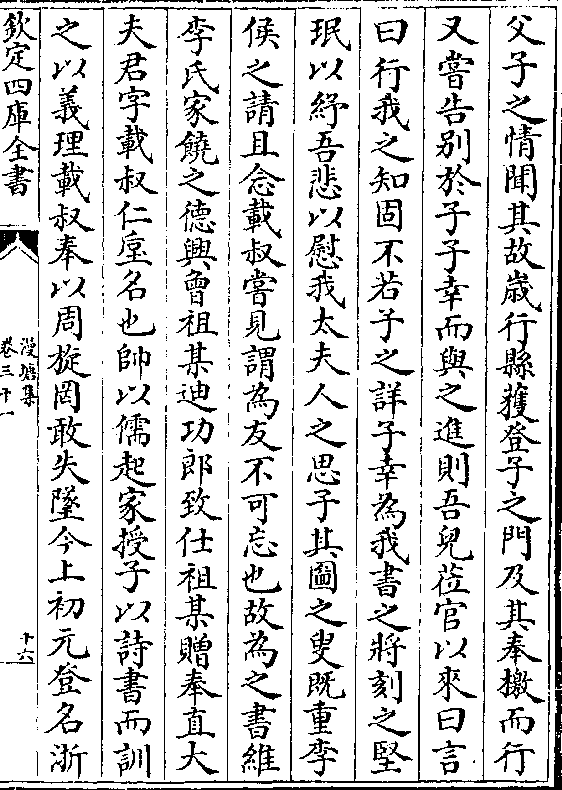 父子之情聞其故歳行縣獲登子之門及其奉檄而行
又嘗告别於子子幸而與之進則吾兒莅官以來曰言
曰行我之知固不若子之詳子幸為我書之將刻之堅
珉以紓吾悲以慰我太夫人之思子其圖之叟既重李
侯之請且念載叔嘗見謂為友不可忘也故為之書維
李氏家饒之德興曾祖某迪功郎致仕祖某贈奉直大
夫君字載叔仁垕名也帥以儒起家授子以詩書而訓
之以義理載叔奉以周旋罔敢失墜今上初元登名浙
欽定四庫全書
漫塘集
卷三十一
十六